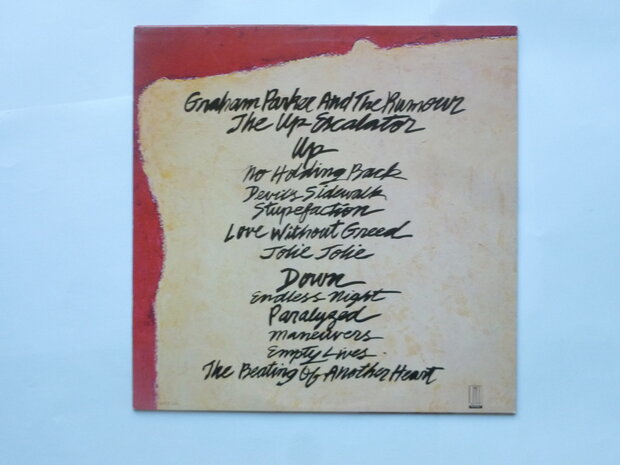 Graham Parker And The Rumour
The Up Escalator
Up
No Holding Back
Devil's Sidewalk
Stupefaction
Love Without Greed
Jolie Jolie
Down
Endless Night
Paralyzed
Maneuvers
Empty Lives
The Beating Of Another Heart